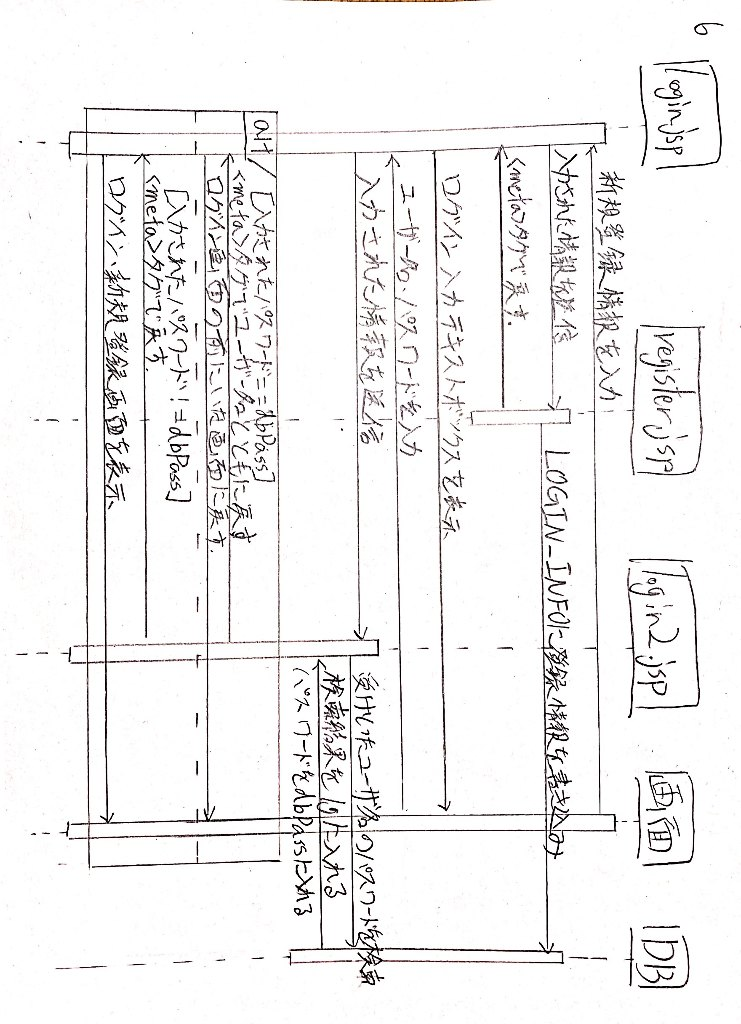 6
login.jsp
register.jsp
login2.jsp
画面
DB
新規登録情報を入力
入力された情報を送信
LOGIN_INFOに登録情報を書き込み
<meta>タグで戻す.
ログイン入力テキストボックスを表示
ユーザー名,パスワードを入力
入力された情報を送信
受けとったユーザ名のパスワードを検索
検索結果を
に入れる
パスワードをdbPassに入れる
alt
[入力されたパスワード==dbPass]
<meta>タグでユーザー名とともに戻す
ログイン画面の前にいた画面に戻す.
[入力されたパスワード!=dbPass]
<meta>タグで戻す.
ログイン,新規登録画面を表示.